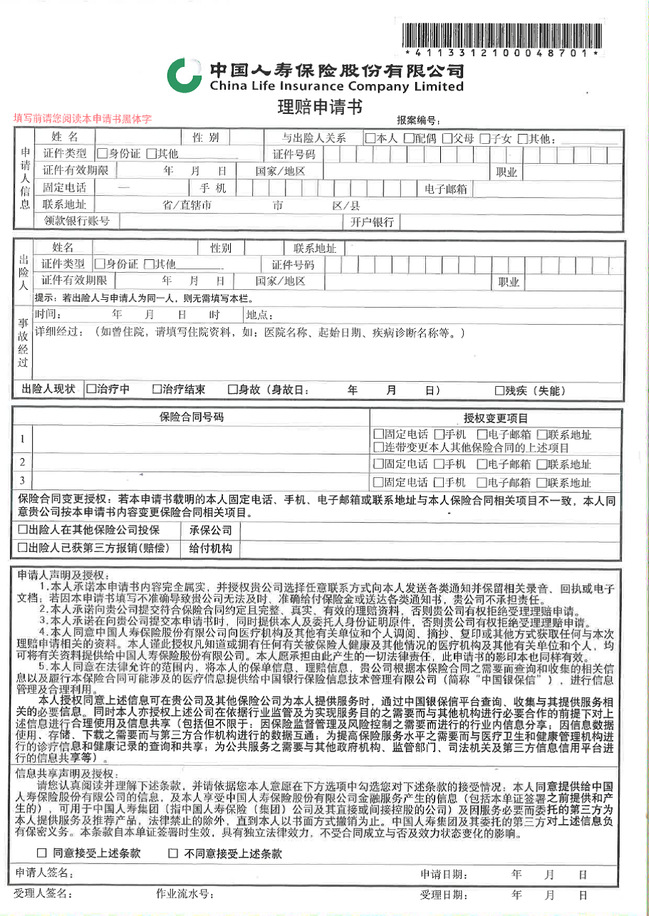 *4113312100048701*
中国人寿保险股份有限公司
China Life Insurance Company Limited
理赔申请书
填写前请您阅读本申请书黑体字 报案编号：
申请人信息
姓名 性别 与出险人关系 □本人 □配偶 □父母 □子女 □其他：
证件类型 □身份证 □其他 证件号码
证件有效期限 年 月 日 国家/地区 职业
固定电话 — 手机 电子邮箱
联系地址 省/直辖市 市 区/县
领款银行账号 开户银行
出险人
姓名 性别 联系地址
证件类型 □身份证 □其他 证件号码
证件有效期限 年 月 日 国家/地区 职业
提示：若出险人与申请人为同一人，则无需填写本栏。
事故经过
时间： 年 月 日 时 地点：
详细经过：（如曾住院，请填写住院资料，如：医院名称、起始日期、疾病诊断名称等。）
出险人现状 □治疗中 □治疗结束 □身故（身故日： 年 月 日） □残疾（失能）
保险合同号码 授权变更项目
1 □固定电话 □手机 □电子邮箱 □联系地址
□连带变更本人其他保险合同的上述项目
2 □固定电话 □手机 □电子邮箱 □联系地址
3 □固定电话 □手机 □电子邮箱 □联系地址
保险合同变更授权：若本申请书载明的本人固定电话、手机、电子邮箱或联系地址与本人保险合同相关项目不一致，本人同
意贵公司按本申请书内容变更保险合同相关项目。
□出险人在其他保险公司投保 承保公司
□出险人已获第三方报销(赔偿) 给付机构
申请人声明及授权：
1.本人承诺本申请书内容完全属实，并授权贵公司选择任意联系方式向本人发送各类通知并保留相关录音、回执或电子
文档；若因本申请书填写不准确导致贵公司无法及时、准确给付保险金或送达各类通知书，贵公司不承担责任。
2.本人承诺向贵公司提交符合保险合同约定且完整、真实、有效的理赔资料，否则贵公司有权拒绝受理理赔申请。
3.本人承诺在向贵公司提交本申请书时，同时提供本人及委托人身份证明原件，否则贵公司有权拒绝受理理赔申请。
4.本人同意中国人寿保险股份有限公司向医疗机构及其他有关单位和个人调阅、摘抄、复印或其他方式获取任何与本次
理赔申请相关的资料。本人谨此授权凡知道或拥有任何有关被保险人健康及其他情况的医疗机构及其他有关单位和个人，均
可将有关资料提供给中国人寿保险股份有限公司。本人愿承担由此产生的一切法律责任，此申请书的影印本也同样有效。
5.本人同意在法律允许的范围内，将本人的保单信息，理赔信息，贵公司根据本保险合同之需要而查询和收集的相关信
息以及履行本保险合同可能涉及的医疗信息提供给中国银行保险信息技术管理有限公司（简称“中国银保信”），进行信息
管理及合理利用。
本人授权同意上述信息可在贵公司及其他保险公司为本人提供服务时，通过中国银保信平台查询、收集与其提供服务相
关的必要信息。同时本人亦授权上述公司在依据行业监管及为实现服务目的之需要而与其他机构进行必要合作的前提下对上
述信息进行合理使用及信息共享（包括但不限于；因保险监督管理及风险控制之需要而进行的行业内信息分享；因信息数据
使用、存储、下载之需要而与第三方合作机构进行的数据互通；为提高保险服务水平之需要而与医疗卫生和健康管理机构进
行的诊疗信息和健康记录的查询和共享；为公共服务之需要与其他政府机构、监管部门、司法机关及第三方信息信用平台进
行的信息共享等）。
信息共享声明及授权：
请您认真阅读并理解下述条款，并请依据您本人意愿在下方选项中勾选您对下述条款的接受情况：本人同意提供给中国
人寿保险股份有限公司的信息，及本人享受中国人寿保险股份有限公司金融服务产生的信息（包括本单证签署之前提供和产
生的），可用于中国人寿集团（指中国人寿保险（集团）公司及其直接或间接控股的公司）及因服务必要而委托的第三方为
本人提供服务及推荐产品，法律禁止的除外，直到本人以书面方式撤销为止。中国人寿集团及其委托的第三方对上述信息负
有保密义务。本条款自本单证签署时生效，具有独立法律效力，不受合同成立与否及效力状态变化的影响。
□ 同意接受上述条款 □ 不同意接受上述条款
申请人签名： 申请日期： 年 月 日
受理人签名： 作业流水号： 受理日期： 年 月 日